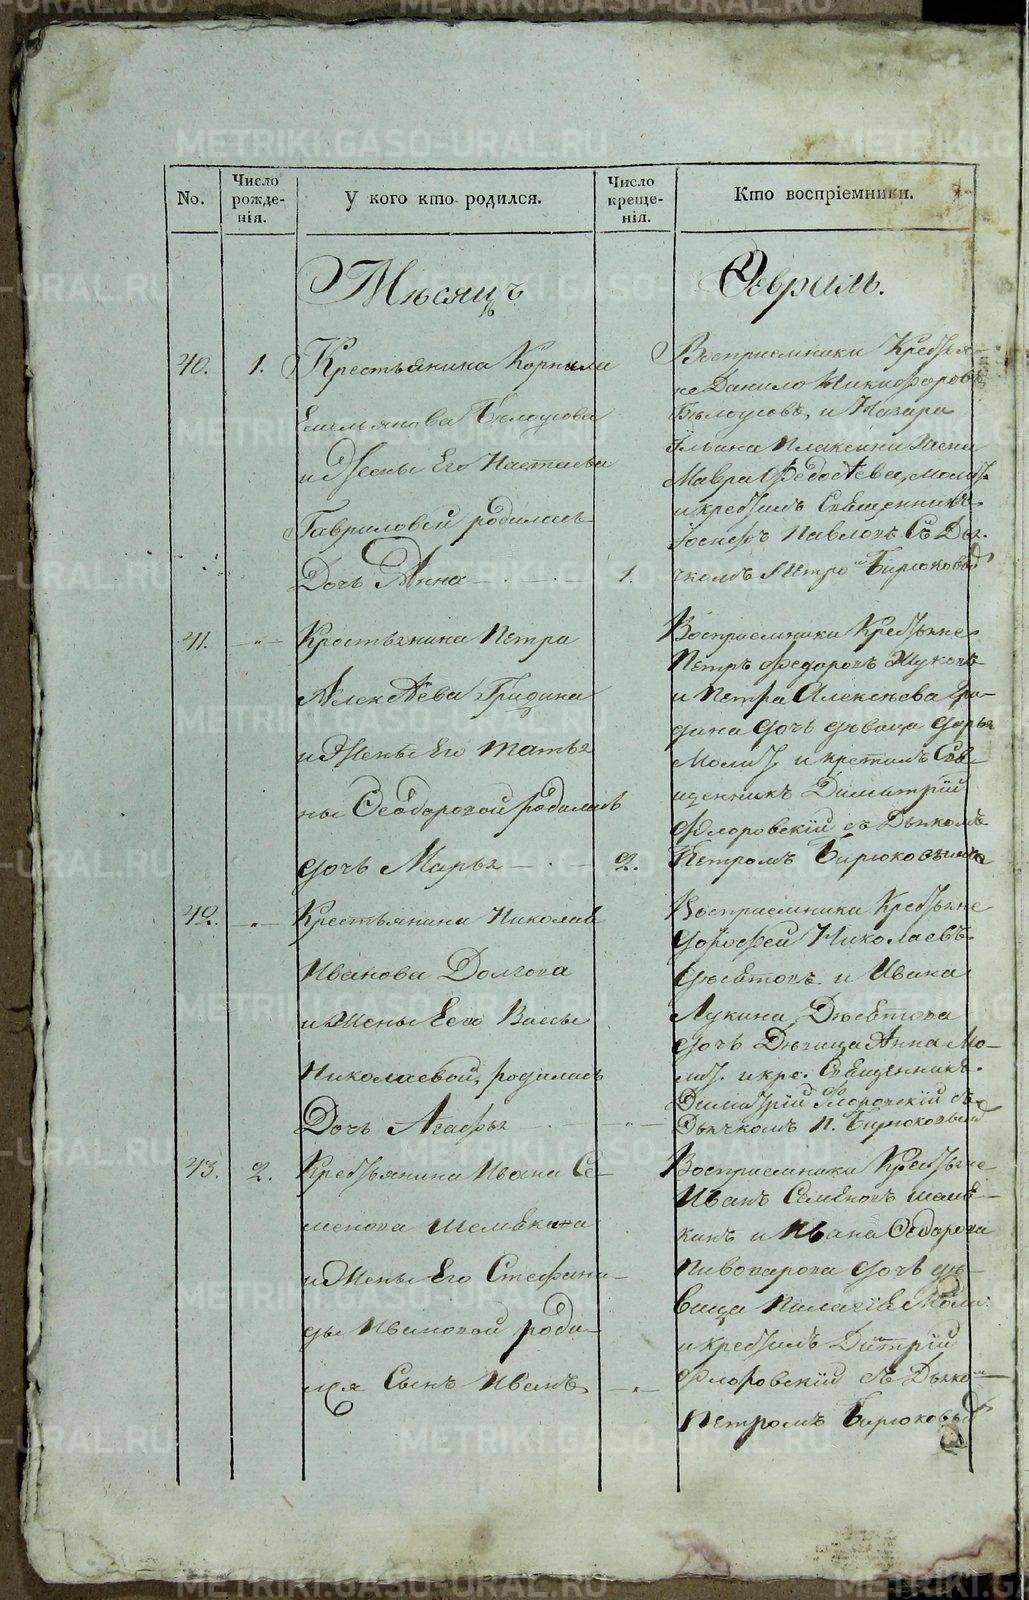 METRIKI.GASO-URAL.RU
No.
Число рожде-нія.
У кого кто родился.
Число креще-нія.
Кто воспріемники.
Мѣсяцъ
Ѳевраль.
40. 1. Крестьянина Корнила
Емельянова Бѣлоусова
и Жены Его Настасьи
Гавриловой родилась
Дочь Анна 1.
Воспріемники Крестья-
не Данило Никифоровъ
Бѣлоусовъ, и Назара
Ильина
Мавра Федосѣева, молит.
и крестилъ Священникъ
Іосифъ Павловъ Съ Дья-
чкомъ Петро Бирюковы
41. Крестьянина Петра
Алексѣева Гридина
и Жены Его Татья
ны Ѳеодоровой родилась
дочь Марья 2.
Воспріемники Крестьяне
Петръ Федоровъ Жуковъ
и Петра Алексѣева Гри-
дина дочь дѣвица Дарья
Молит. и крестилъ Свя-
щенникъ Димитрій
Флоровскій съ Дьячкомъ
Петромъ Бирюковымъ
42. Крестьянина Николая
Иванова Долгова
и Жены Его Вассы
Николаевой, родилась
Дочь Агафья
Воспріемники Крестьяне
Дорофей Николаевъ
Дюѣтовъ и Ивана
Лукина Дюѣтова
дочь Дѣвица Анна Мо-
лит. и кре. Священникъ
Димитрій Флоровскій съ
Дьячкомъ П. Бирюковым
43. 2. Крестьянина Ивана Се-
менова Шемѣкина
и Жены Его Стефани-
ды Ивановой роди-
лся Сынъ Иванъ
Воспріемники Крестьяне
Иванъ Семеновъ Шемѣ-
кинъ и Ивана Ѳедорова
Пивоварова дочь дѣ-
вица Палагія Моли.
и крестилъ Дмитрій
Флоровскій Съ Дьячко
Петромъ Бирюковы